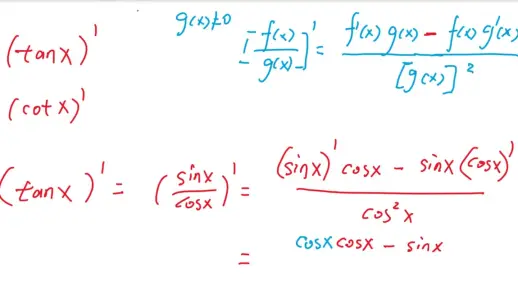 g(x)≠0 [f(x)/g(x)]' = (f'(x) g(x) − f(x) g'(x))/[g(x)]²
(tanx)'
(cotx)'
(tanx)' = (sinx/cosx)' = ((sinx)' cosx − sinx (cosx)')/cos²x
= cosx cosx − sinx